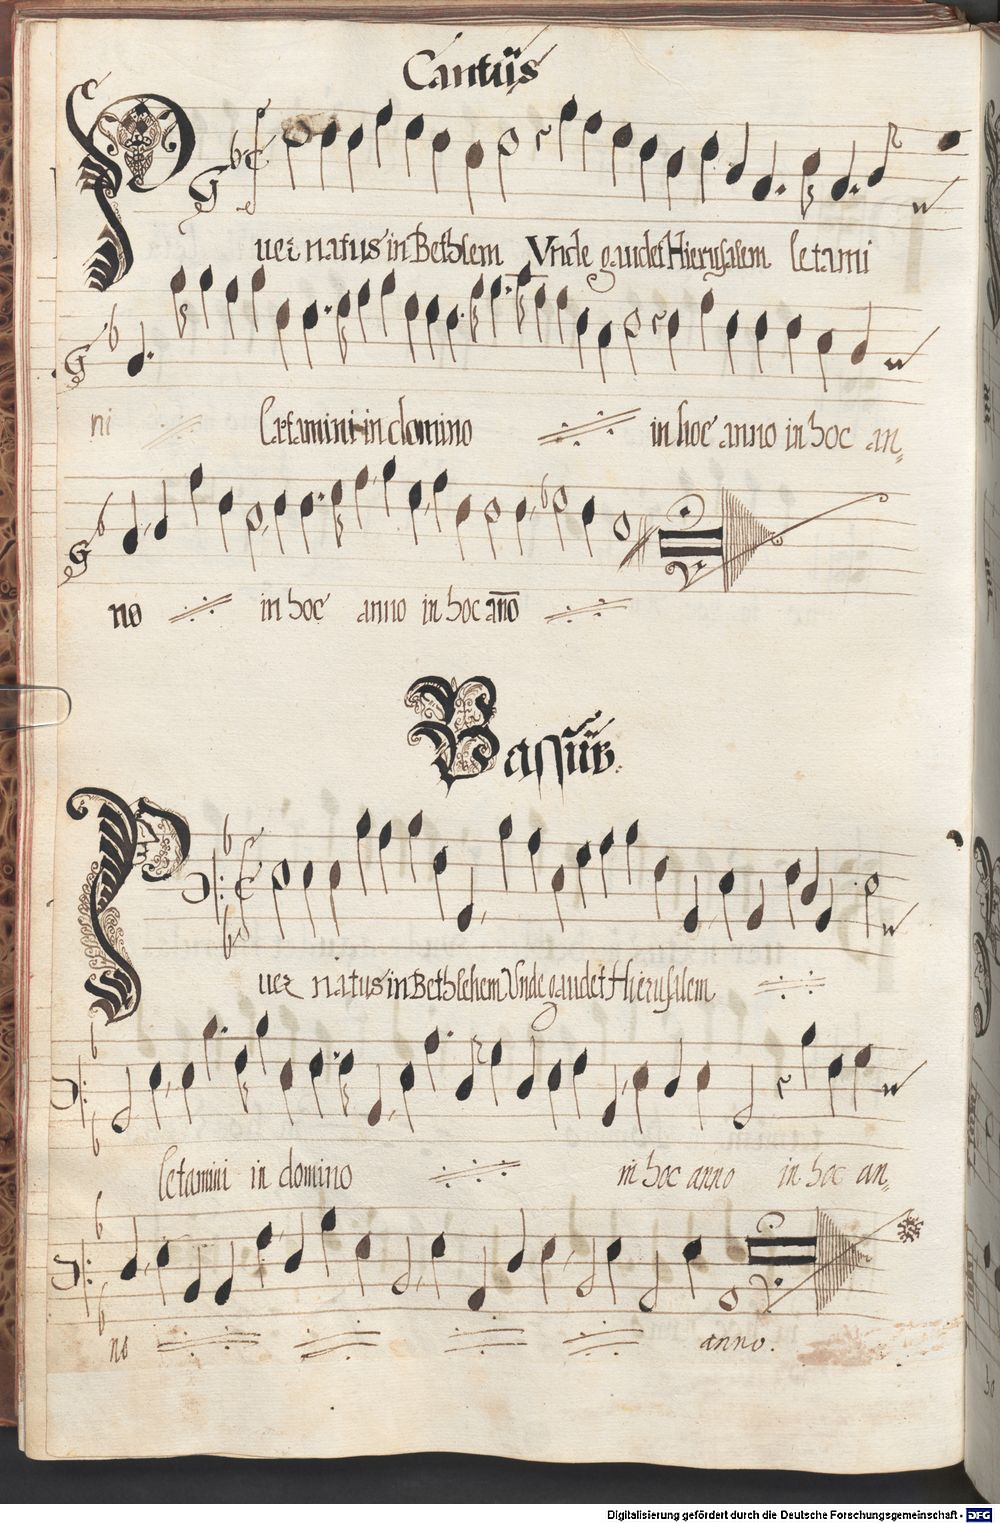 Cantus
Puer natus in Bethlem Vnde gaudet Hierusalem letami
ni Letamini in domino in hoc anno in hoc an-
no in hoc anno in hoc año
Bassus.
Puer natus in Bethlehem Vnde gaudet Hierusalem
letamini in domino in hoc anno in hoc an-
no anno.
Digitalisierung gefördert durch die Deutsche Forschungsgemeinschaft - DFG